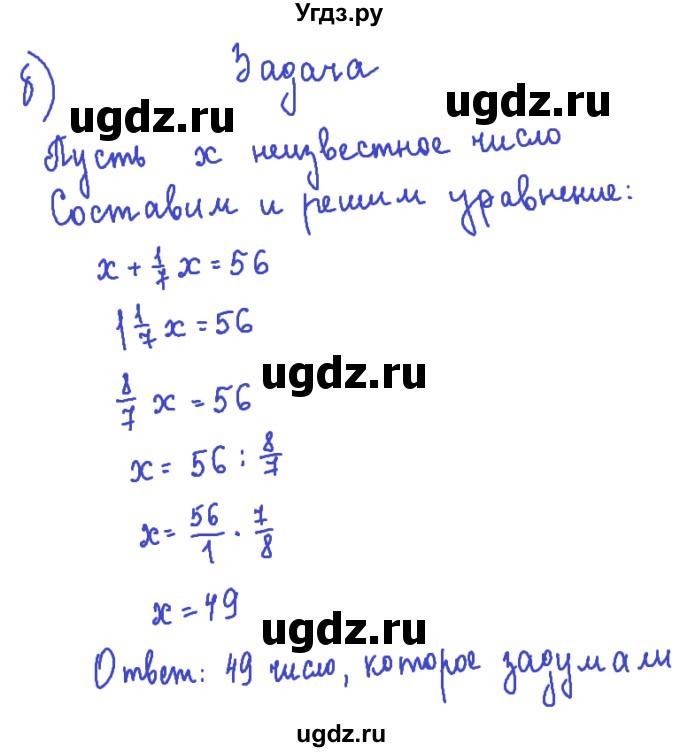 Угдз.ру
б) Задача
ugdz.ru ugdz.ru
Пусть x неизвестное число
Составим и решим уравнение:
x + 1/7 x = 56
1 1/7 x = 56
ugdz.ru
8/7 x = 56
x = 56 : 8/7
x = 56/1 · 7/8
x = 49
ugdz.ru
Ответ: 49 число, которое задумали
ugdz.ru